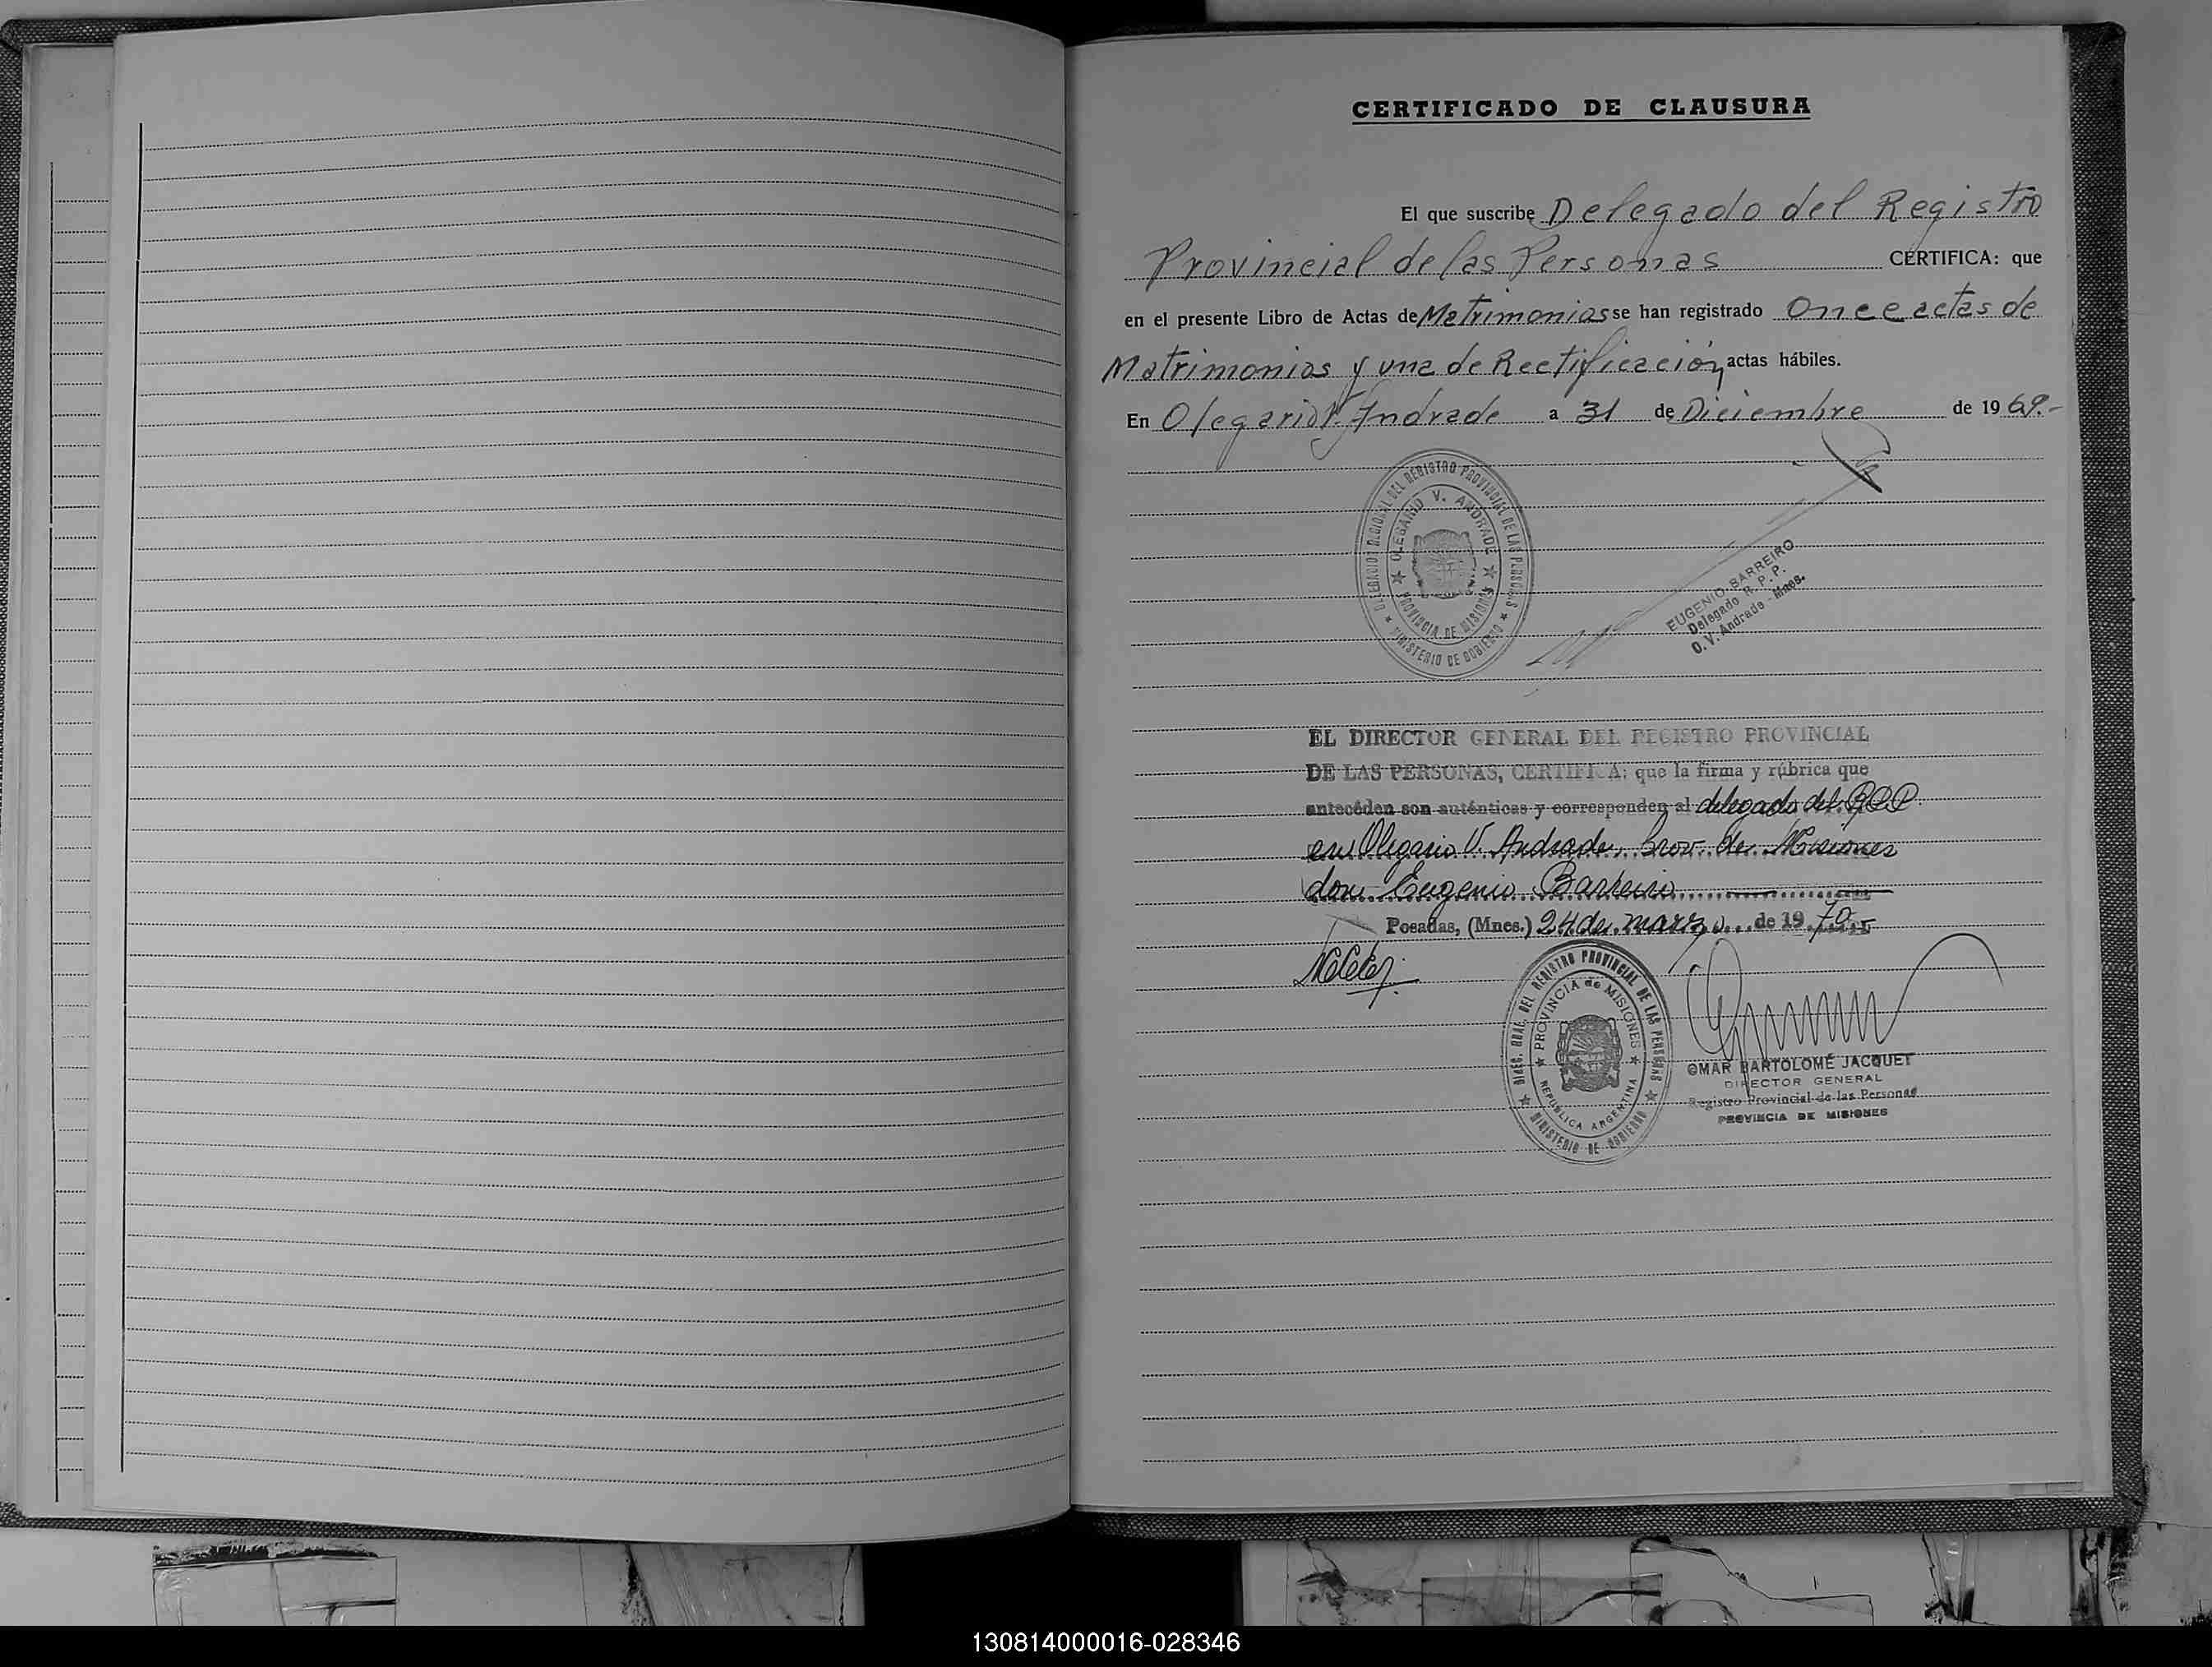 CERTIFICADO DE CLAUSURA
El que suscribe Delegado del Registro
Provincial de las Personas CERTIFICA: que
en el presente Libro de Actas de Matrimonios se han registrado Once actas de
Matrimonios y una de Rectificación, actas hábiles.
En Olegario V. Andrade a 31 de Diciembre de 1969.-
DELEGACION REGIONAL DEL REGISTRO PROVINCIAL DE LAS PERSONAS
OLEGARIO V. ANDRADE
PROVINCIA DE MISIONES
MINISTERIO DE GOBIERNO
EUGENIO BARREIRO
Delegado R. P. P.
O. V. Andrade - Mnes.
EL DIRECTOR GENERAL DEL REGISTRO PROVINCIAL
DE LAS PERSONAS, CERTIFICA: que la firma y rúbrica que
anteceden son auténticas y corresponden al delegado del R.P.P.
en Olegario V. Andrade, Prov. de Misiones
don Eugenio Barreiro
Posadas, (Mnes.) 24 de marzo de 1970.-
DIREC. GRAL. DEL REGISTRO PROVINCIAL DE LAS PERSONAS
PROVINCIA de MISIONES
REPUBLICA ARGENTINA
MINISTERIO DE GOBIERNO
OMAR BARTOLOMÉ JACQUET
DIRECTOR GENERAL
Registro Provincial de las Personas
PROVINCIA DE MISIONES
130814000016-028346